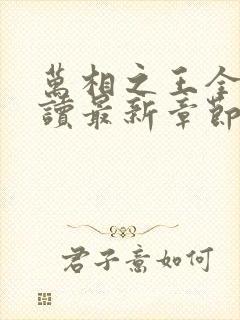 萬相之王全
讀最新章節
君子意如何